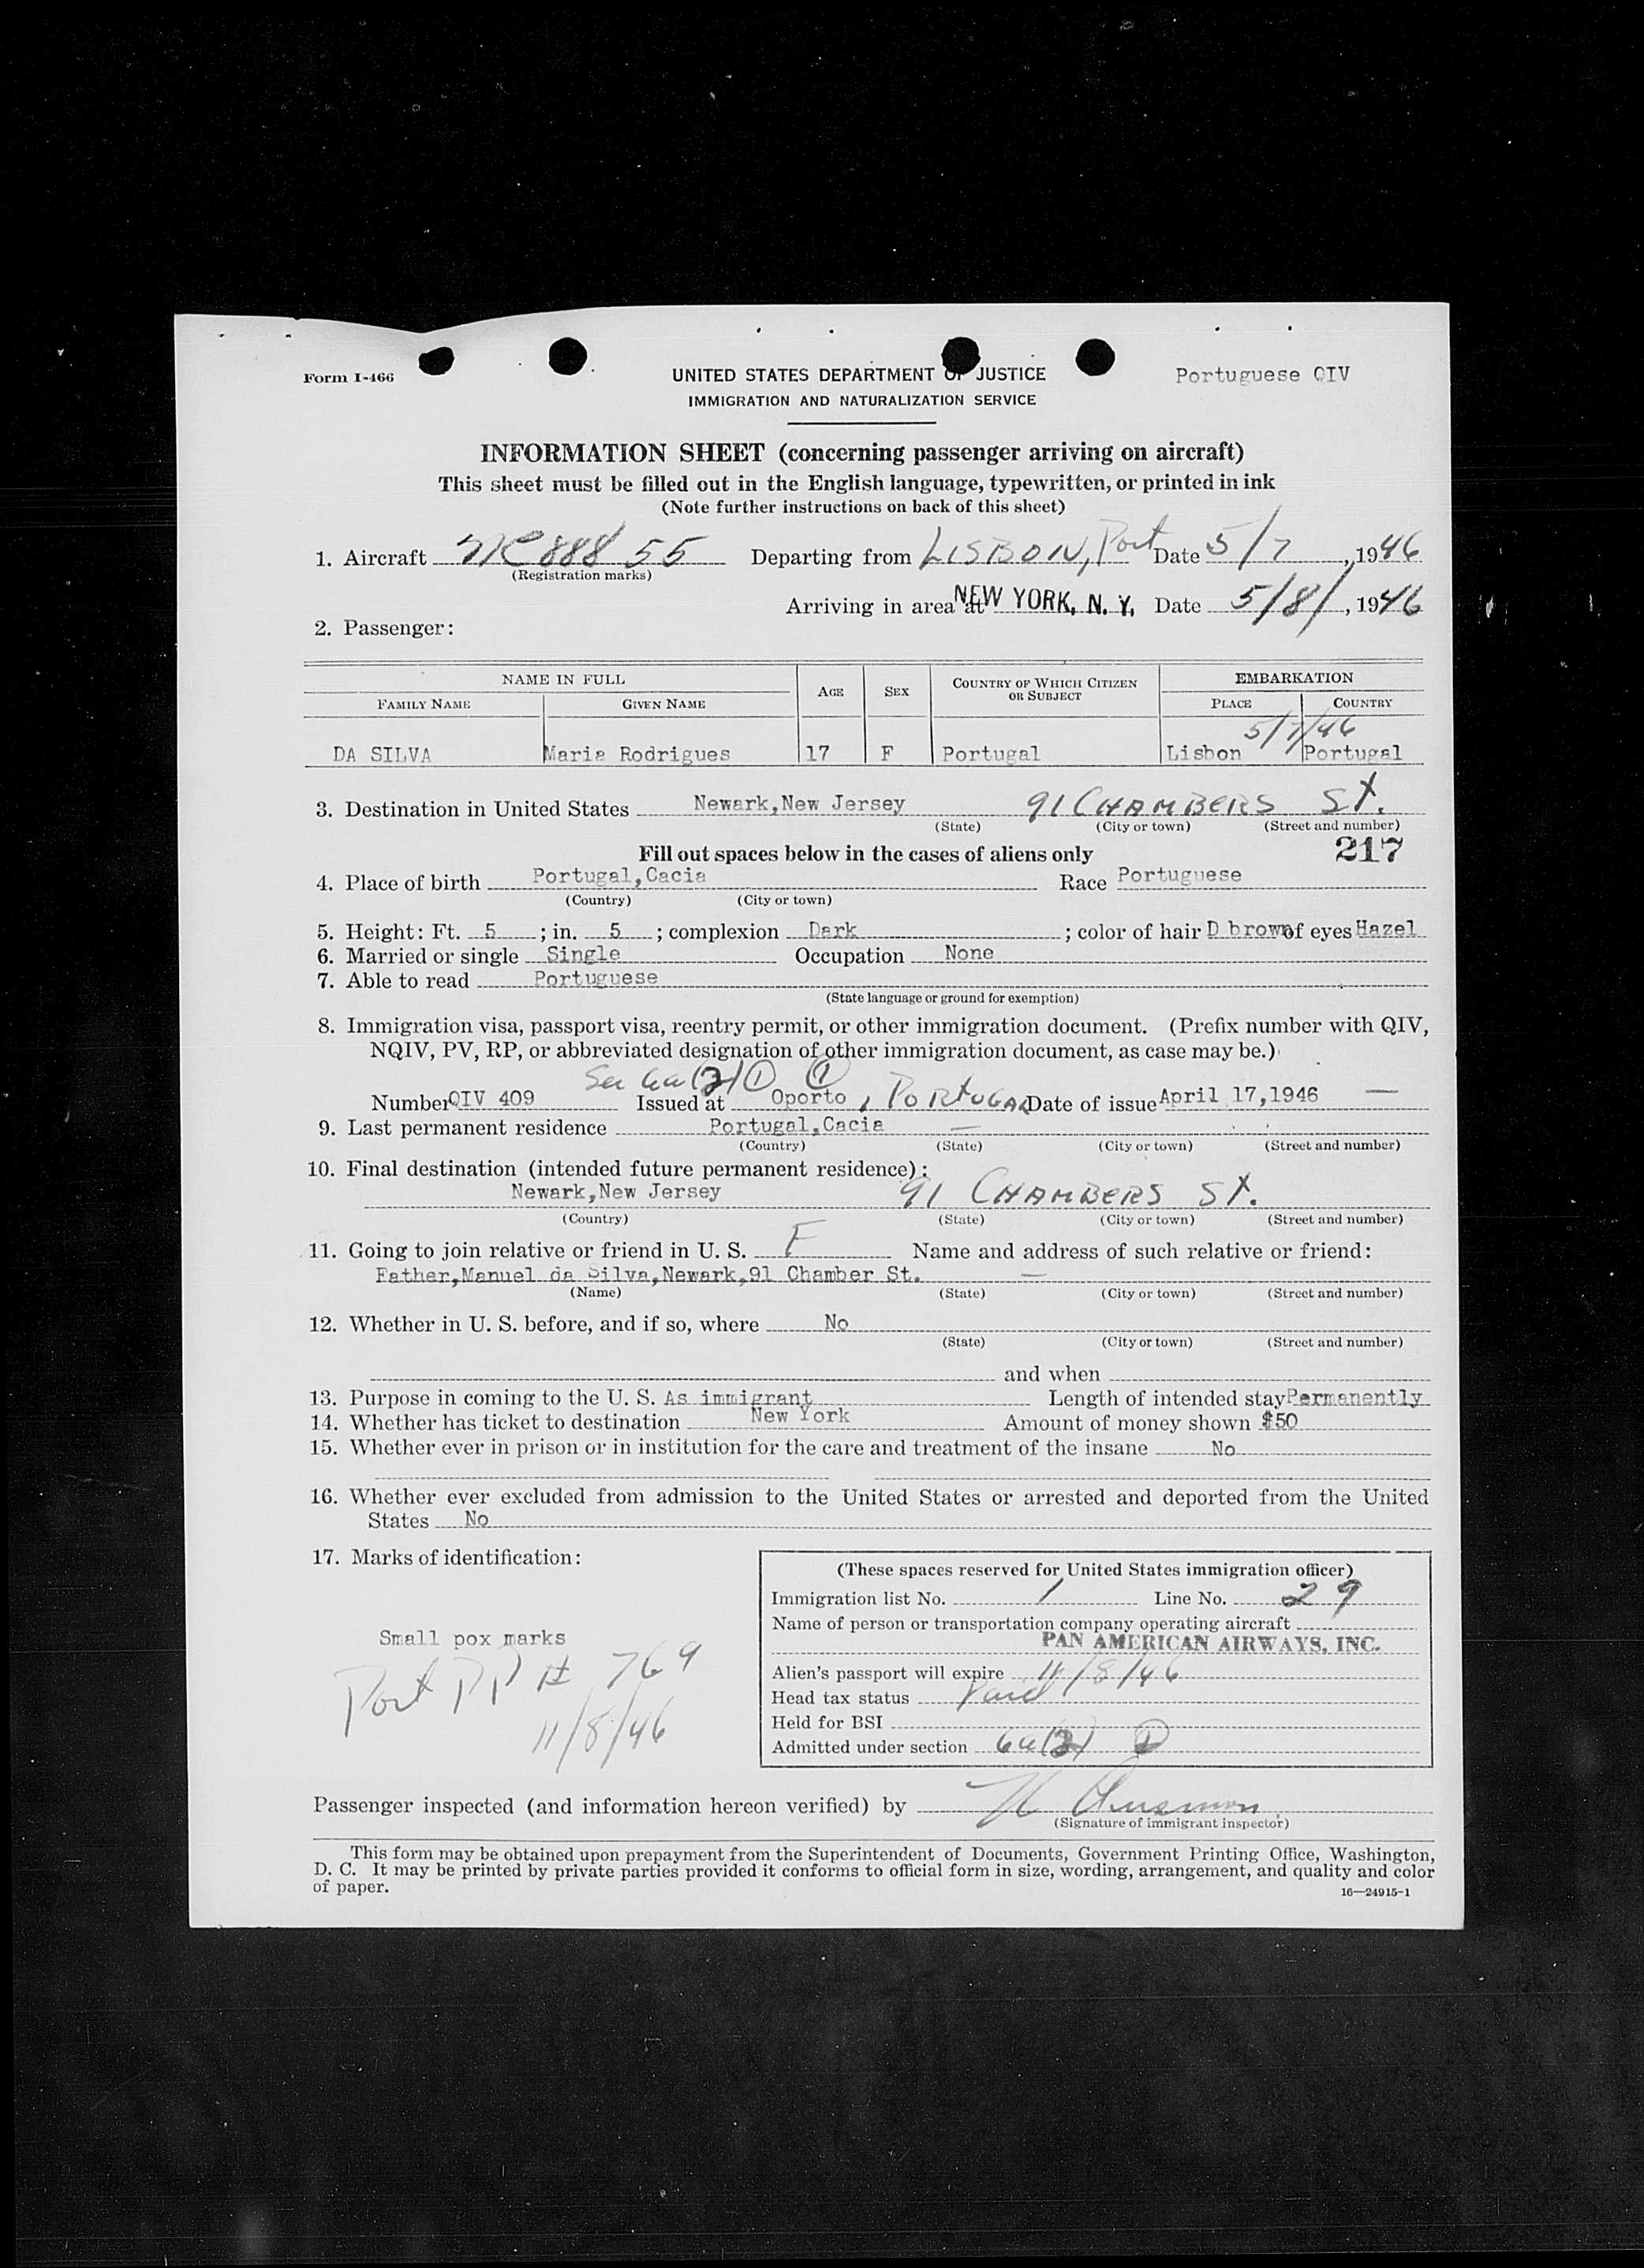 Form I-466
UNITED STATES DEPARTMENT OF JUSTICE
Portuguese QIV
IMMIGRATION AND NATURALIZATION SERVICE
INFORMATION SHEET (concerning passenger arriving on aircraft)
This sheet must be filled out in the English language, typewritten, or printed in ink
(Note further instructions on back of this sheet)
1. Aircraft NC 888 55 Departing from LISBON, Port Date 5/7, 1946
(Registration marks)
Arriving in area at NEW YORK, N. Y. Date 5/8/, 1946
2. Passenger:
NAME IN FULL AGE SEX COUNTRY OF WHICH CITIZEN OR SUBJECT EMBARKATION
FAMILY NAME GIVEN NAME PLACE COUNTRY
5/7/46
DA SILVA Maria Rodrigues 17 F Portugal Lisbon Portugal
3. Destination in United States Newark,New Jersey 91 CHAMBERS St.
(State) (City or town) (Street and number)
Fill out spaces below in the cases of aliens only 217
4. Place of birth Portugal,Cacia Race Portuguese
(Country) (City or town)
5. Height: Ft. 5; in. 5; complexion Dark; color of hair D brown of eyes Hazel
6. Married or single Single Occupation None
7. Able to read Portuguese
(State language or ground for exemption)
8. Immigration visa, passport visa, reentry permit, or other immigration document. (Prefix number with QIV,
NQIV, PV, RP, or abbreviated designation of other immigration document, as case may be.)
Sec 6a(2) 1 1
Number QIV 409 Issued at Oporto, PORTUGAL Date of issue April 17,1946 —
9. Last permanent residence Portugal,Cacia —
(Country) (State) (City or town) (Street and number)
10. Final destination (intended future permanent residence):
Newark,New Jersey 91 CHAMBERS St.
(Country) (State) (City or town) (Street and number)
11. Going to join relative or friend in U. S. F Name and address of such relative or friend:
Father,Manuel da Silva,Newark,91 Chamber St. —
(Name) (State) (City or town) (Street and number)
12. Whether in U. S. before, and if so, where No
(State) (City or town) (Street and number)
and when
13. Purpose in coming to the U. S. As immigrant Length of intended stay Permanently
14. Whether has ticket to destination New York Amount of money shown $50
15. Whether ever in prison or in institution for the care and treatment of the insane No
16. Whether ever excluded from admission to the United States or arrested and deported from the United
States No
17. Marks of identification:
Small pox marks
Port PP # 769
11/8/46
(These spaces reserved for United States immigration officer)
Immigration list No. 1 Line No. 29
Name of person or transportation company operating aircraft
PAN AMERICAN AIRWAYS, INC.
Alien's passport will expire 11/8/46
Head tax status Paid
Held for BSI
Admitted under section 6a(2) 1
Passenger inspected (and information hereon verified) by
(Signature of immigrant inspector)
This form may be obtained upon prepayment from the Superintendent of Documents, Government Printing Office, Washington,
D. C. It may be printed by private parties provided it conforms to official form in size, wording, arrangement, and quality and color
of paper.
16—24915-1